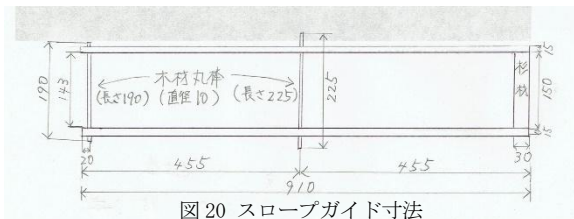 190
143
木材丸棒
(長さ190) (直径10) (長さ225)
225
杉板
15
150
15
20
455
455
30
910
図 20 スロープガイド寸法